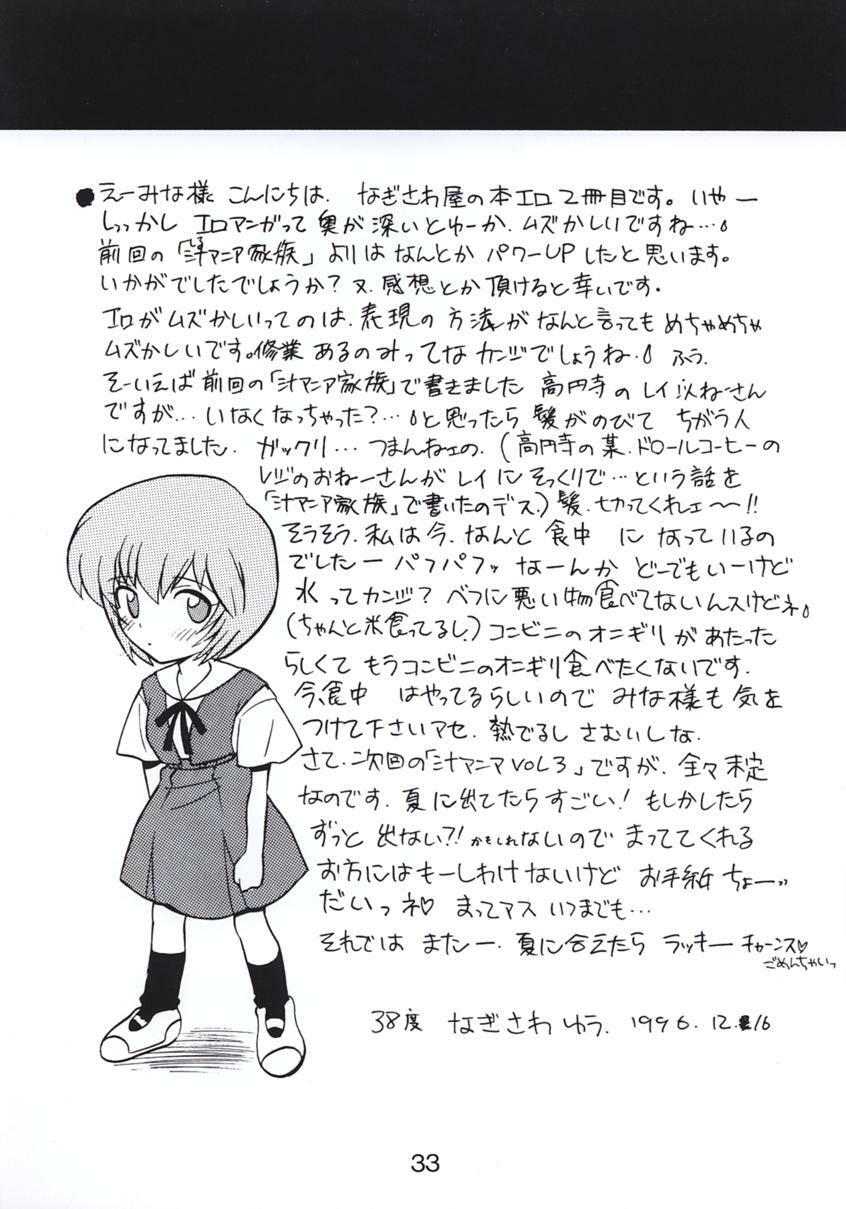 ●えーみな様 こんにちは、なぎさわ屋の本エロ2冊目です。いやー
しっかし エロマンガって 奥が 深いとゆーか、ムズかしいですね…。
前回の「汁マニア家族」よりは なんとか パワーUPしたと思います。
いかがでしたでしょうか? 又、感想とか頂けると幸いです。
エロがムズかしいってのは、表現の方法が なんと言っても めちゃめちゃ
ムズかしいです。修業あるのみってな カンジでしょうね。ふう。
そーいえば 前回の「汁マニア家族」で書きました 高円寺の レイ似ねーさん
ですが… いなくなっちゃった?… と思ったら 髪がのびて ちがう人
になってました。ガックリ… つまんねェの。(高円寺の某、ドロールコーヒーの
レジのおねーさんが レイに そっくりで… という話を
「汁マニア家族」で書いたのデス。) 髪、切ってくれェ〜!!
そうそう、私は今、なんと 食中 に なっているの
でしたー パフパフッ なーんか どーでもいーけど
水 ってカンジ? べつに悪い物食べてないんスけどネ。
(ちゃんと 米食ってるし。) コンビニの オニギリ が あたった
らしくて もうコンビニのオニギリ食べたくないです。
今、食中 はやってるらしいので みな様も 気を
つけて下さいアセ、熱でるし さむいしな。
さて、次回の「汁マニア VOL3」ですが、全々未定
なのです。夏に出てたらすごい! もしかしたら
ずっと 出ない?! かもしれないので まっててくれる
お方にはもーしわけ ないけど お手紙 ちょーッ
だいっネ♡ まってマス いつまでも…
それでは またー、夏に会えたら ラッキー チャーンス♡
ごめんちゃいっ
38度 なぎさわ ゆう. 1996. 12. 16
33